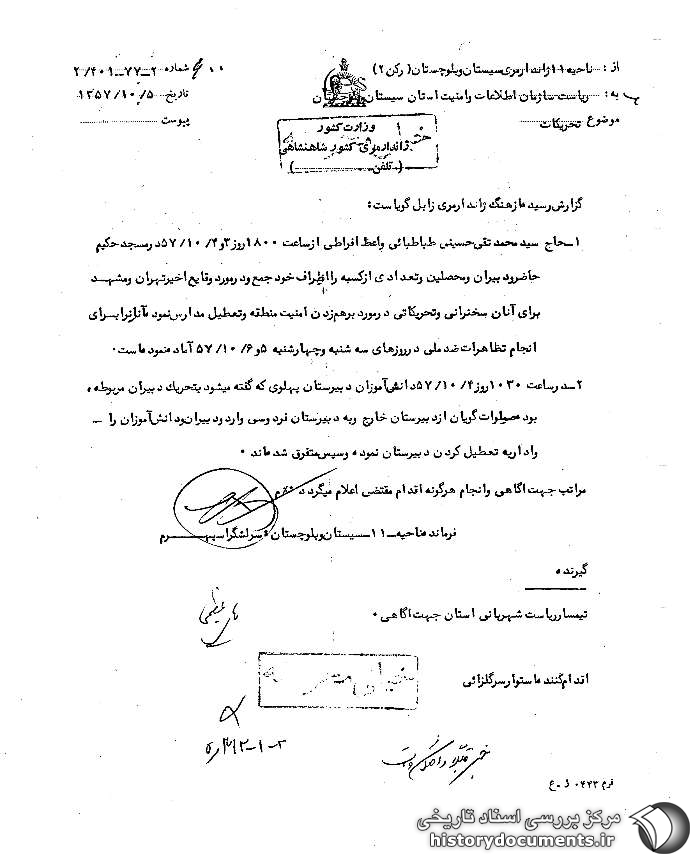 از : ناحیه ۱۱ ژاندارمری سیستان وبلوچستان ( رکن ۲ )
شماره ۲ـ۷۷ـ۲/۴۰۱
به : ریاست سازمان اطلاعات وامنیت استان سیستان
تاریخ ۱۳۵۷/۱۰/۵
موضوع تحریکات
پیوست
وزارت کشور
ژاندارمری کشور شاهنشاهی
( تلفن )
گزارش رسیده ازهنگ ژاندارمری زابل گویاست :
۱ـ حاج سید محمد تقی حسینی طباطبائی واعظ افراطی ازساعت ۱۸۰۰ روز ۳و۴/ ۱۰/ ۵۷ درمسجد حکیم
حاضرودبیران ومحصلین وتعدادی ازکسبه رااطراف خود جمع ودرمورد وقایع اخیرتهران ومشهد
برای آنان سخنرانی وتحریکاتی درمورد برهم زدن امنیت منطقه وتعطیل مدارس نموده آنانرابرای
انجام تظاهرات ضد ملی درروزهای سه شنبه وچهارشنبه ۵و۶/ ۱۰/ ۵۷ آماده نموده است ۰
۲ـ درساعت ۱۰۳۰ روز ۴/ ۱۰/ ۵۷ دانش آموزان دبیرستان پهلوی که گفته میشود بتحریك دبیران مربوطه
بوده صلوات گویان ازدبیرستان خارج وبه دبیرستان فردوسی واردودبیران ودانش آموزان را ــ
واداربه تعطیل کردن دبیرستان نموده وسپس متفرق شده اند ۰
مراتب جهت آگاهی وانجام هرگونه اقدام مقتضی اعلام میگردد
فرمانده ناحیه ـ ۱۱ ـ سیستان وبلوچستان ۰ سرلشگر
گیرنده
تیمسارریاست شهربانی استان جهت آگاهی ۰
اقدام کننده استوارسرگلزائی
فرم ۰۴۴۳
مرکز بررسی اسناد تاریخی
historydocuments.ir